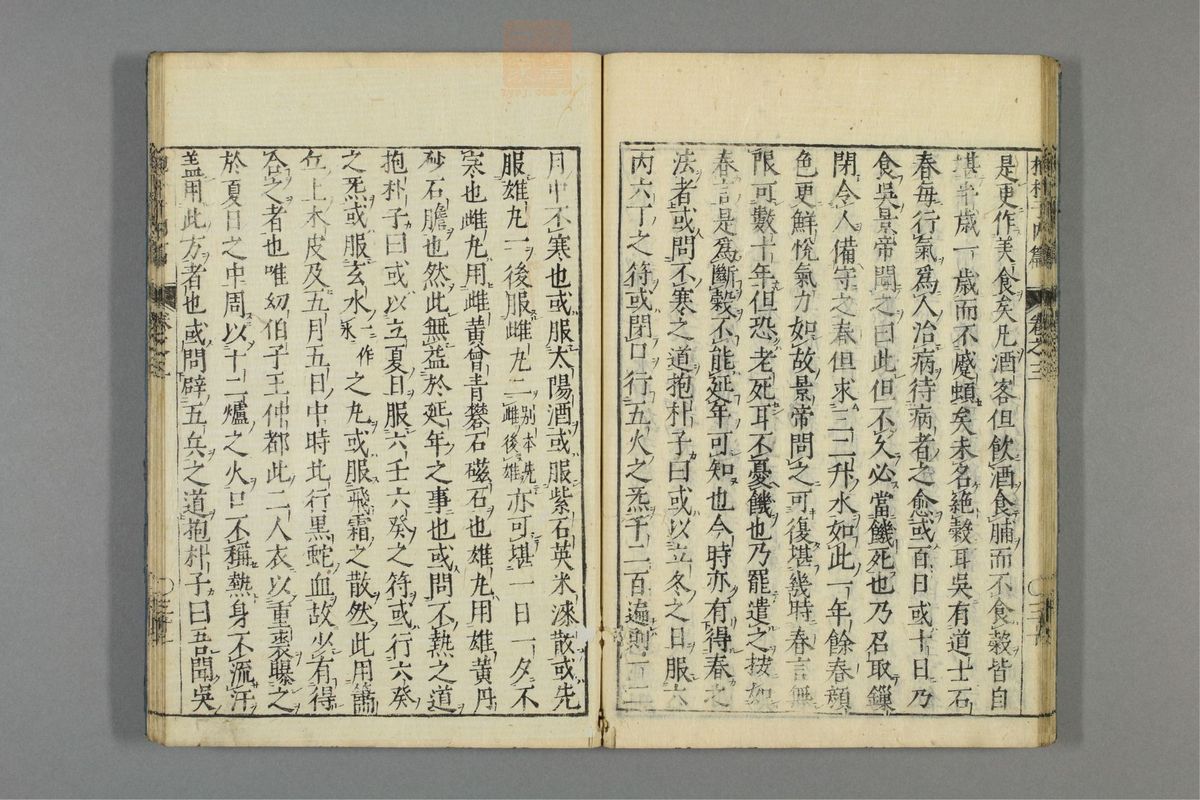 是更作美食矣凡酒客但飲酒食脯而不食穀皆自
堪半歳一歳而不蹷頓矣未名絶穀耳吳有道士石
春毎行氣爲人治病待病者之愈或百日或十日乃
食吳景帝聞之曰此但不久必當饑死也乃召取鏁
閉令人備守之春但求三二升水如此一年餘春顏
色更鮮悅氣力如故景帝問之可復堪幾時春言無
限可數十年但恐老死耳不憂饑也乃罷遣之按如
春言是爲斷穀不能延年可知也今時亦有得春之
法者或問不寒之道抱朴子曰或以立冬之日服六
丙六丁之符或閉口行五火之炁千二百遍則十二
月中不寒也或服太陽酒或服紫石英朱漆散或先
服雄丸一後服雌丸二別本先雌後雄亦可堪一日一夕不
寒也雌丸用雌黃曾青礬石磁石也雄丸用雄黃丹
砂石膽也然此無益於延年之事也或問不熱之道
抱朴子曰或以立夏日服六壬六癸之符或行六癸
之炁或服玄水一作氷之丸或服飛霜之散然此用簫
丘上木皮及五月五日中時北行黑蛇血故少有得
合之者也唯幼伯子王仲都此二人衣以重裘曝之
於夏日之中周以十二爐之火口不稱熱身不流汗
葢用此方者也或問辟五兵之道抱朴子曰吾聞吳
抱朴子内篇
卷之三